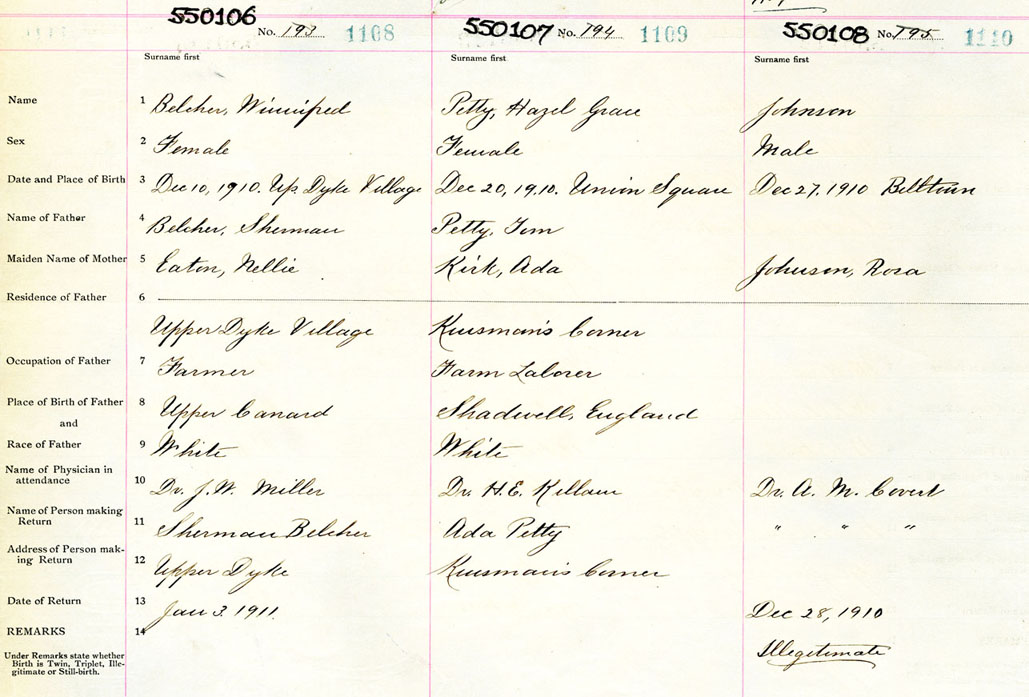 550106 No. 793 1108
550107 No. 794 1109
550108 No. 795 1110
Surname first Surname first Surname first
Name 1 Belcher, Winnifred Petty, Hazel Grace Johnson
Sex 2 Female Female Male
Date and Place of Birth 3 Dec 10, 1910. Up. Dyke Village Dec 20, 1910. Union Square Dec 27, 1910 Billtown
Name of Father 4 Belcher, Sherman Petty, Tom
Maiden Name of Mother 5 Eaton, Nellie Kirk, Ada Johnson, Rosa
Residence of Father 6
Upper Dyke Village Kinsman's Corner
Occupation of Father 7 Farmer Farm Laborer
Place of Birth of Father 8 Upper Canard Shadwell, England
and
Race of Father 9 White White
Name of Physician in
attendance 10 Dr. J.W. Miller Dr. H.E. Killam Dr. A. M. Covert
Name of Person making
Return 11 Sherman Belcher Ada Petty " " "
Address of Person mak-
ing Return 12 Upper Dyke Kinsman's Corner
Date of Return 13 Jan 3. 1911. Dec 28, 1910
REMARKS 14 Illegitimate
Under Remarks state whether
Birth is Twin, Triplet, Ille-
gitimate or Still-birth.